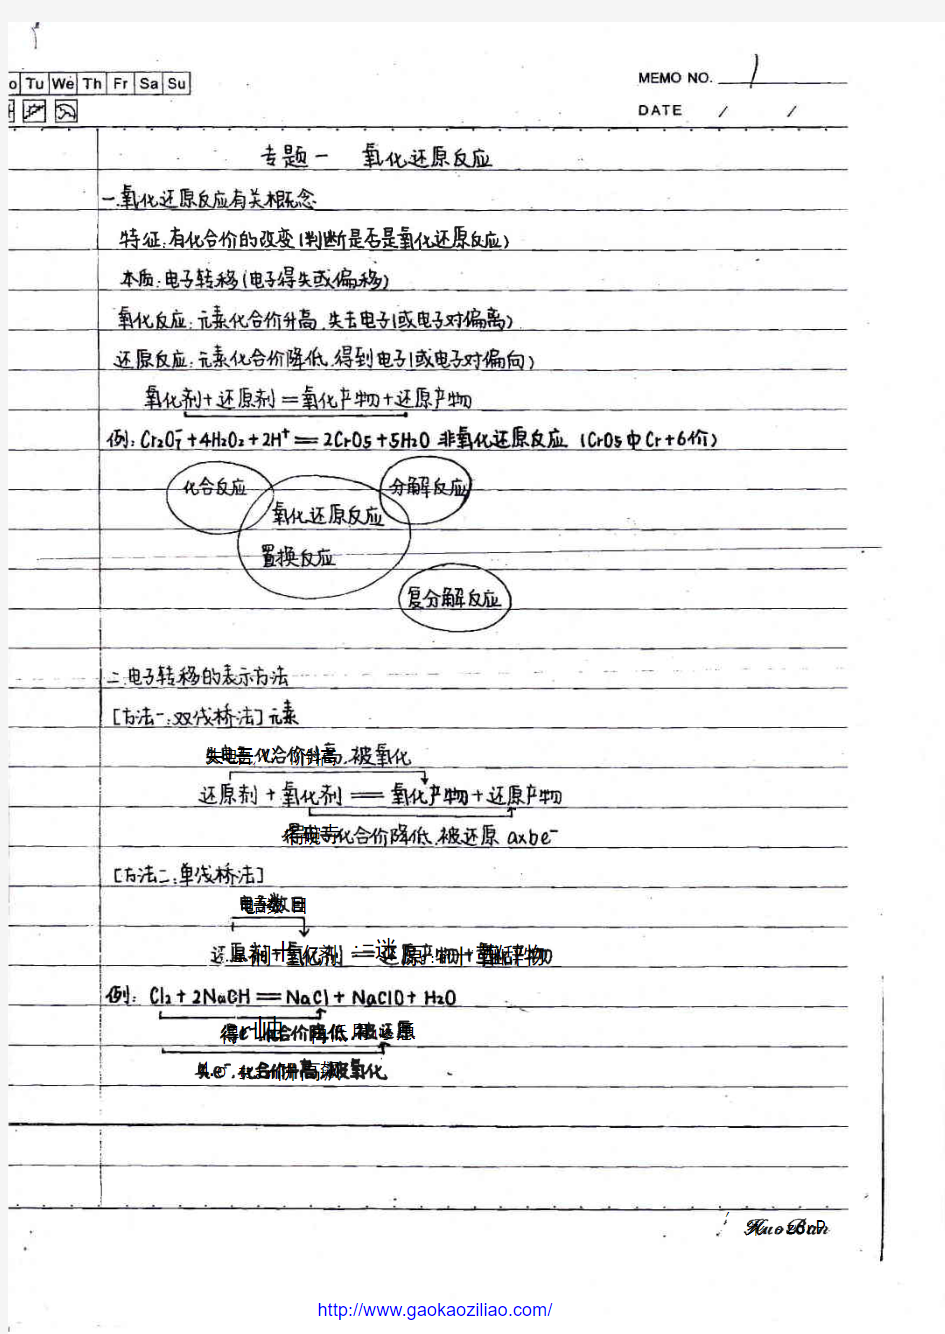 o Tu We Th Fr Sa Su
MEMO NO. 1
DATE / /
专题一 氧化还原反应
一.氧化还原反应有关概念
特征:有化合价的改变(判断是否是氧化还原反应)
本质:电子转移(电子得失或偏移)
氧化反应:元素化合价升高.失去电子(或电子对偏离)
还原反应:元素化合价降低.得到电子(或电子对偏向)
氧化剂+还原剂=氧化产物+还原产物
例:Cr2O7+4H2O2+2H+=2CrO5+5H2O 非氧化还原反应 (CrO5中Cr+6价)
化合反应
分解反应
氧化还原反应
置换反应
复分解反应
二.电子转移的表示方法
[方法一:双线桥法]元素
化合价升高.被氧化
还原剂+氧化剂=氧化产物+还原产物
化合价降低.被还原 axbe-
[方法二:单线桥法]
电子数目
例:Cl2+2NaOH=NaCl+NaClO+H2O
得e- 化合价降低 被还原
失e-.化合价升高 被氧化
http://www.gaokaoziliao.com/